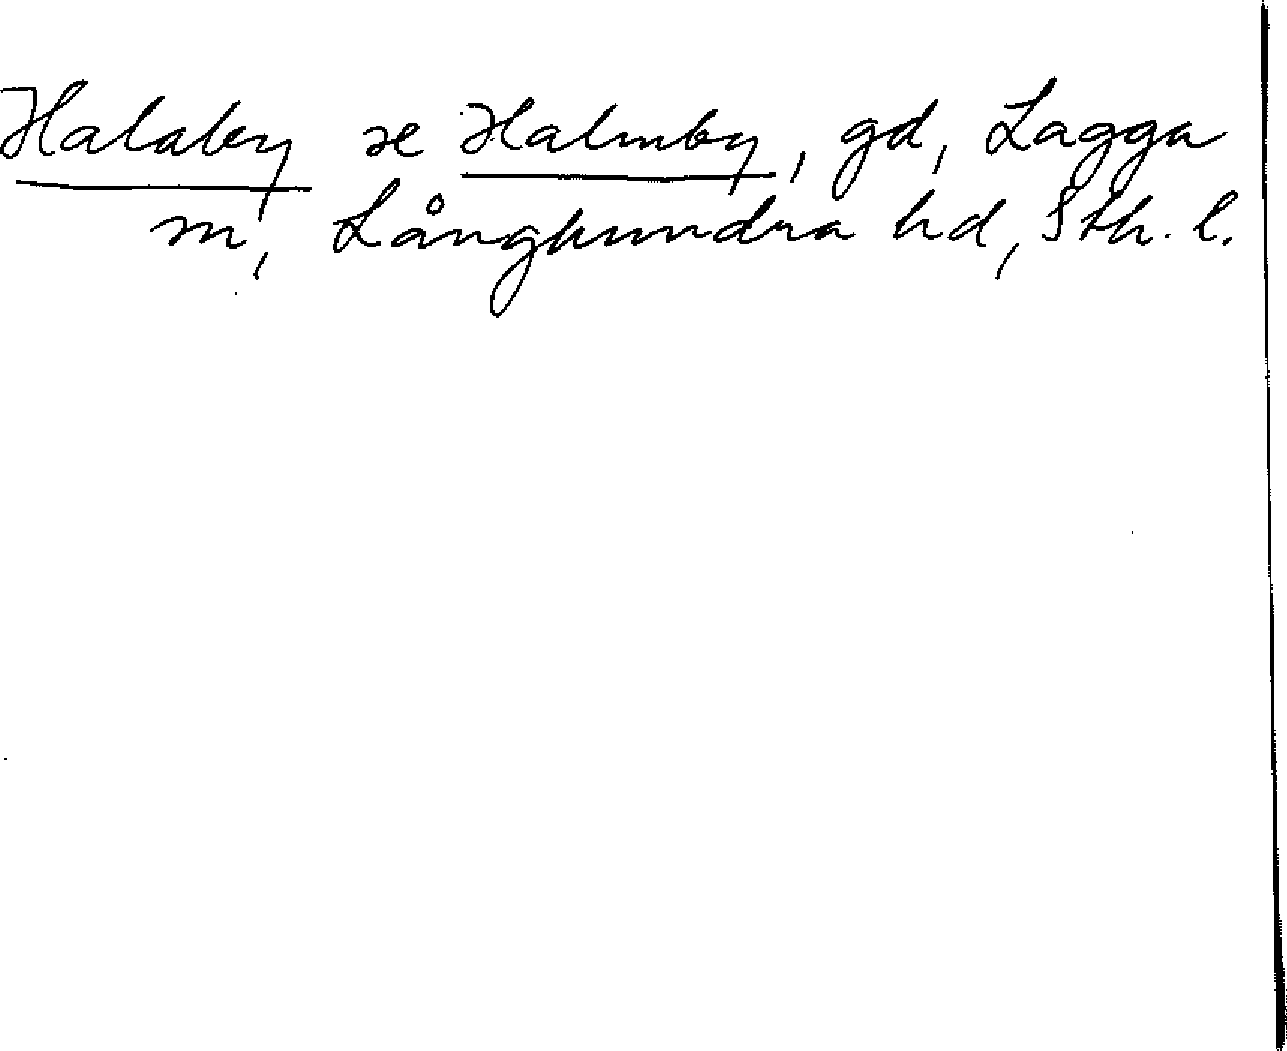 Halaby se Halmby, gd, Lagga
sn, Långhundra hd, Sth. l.